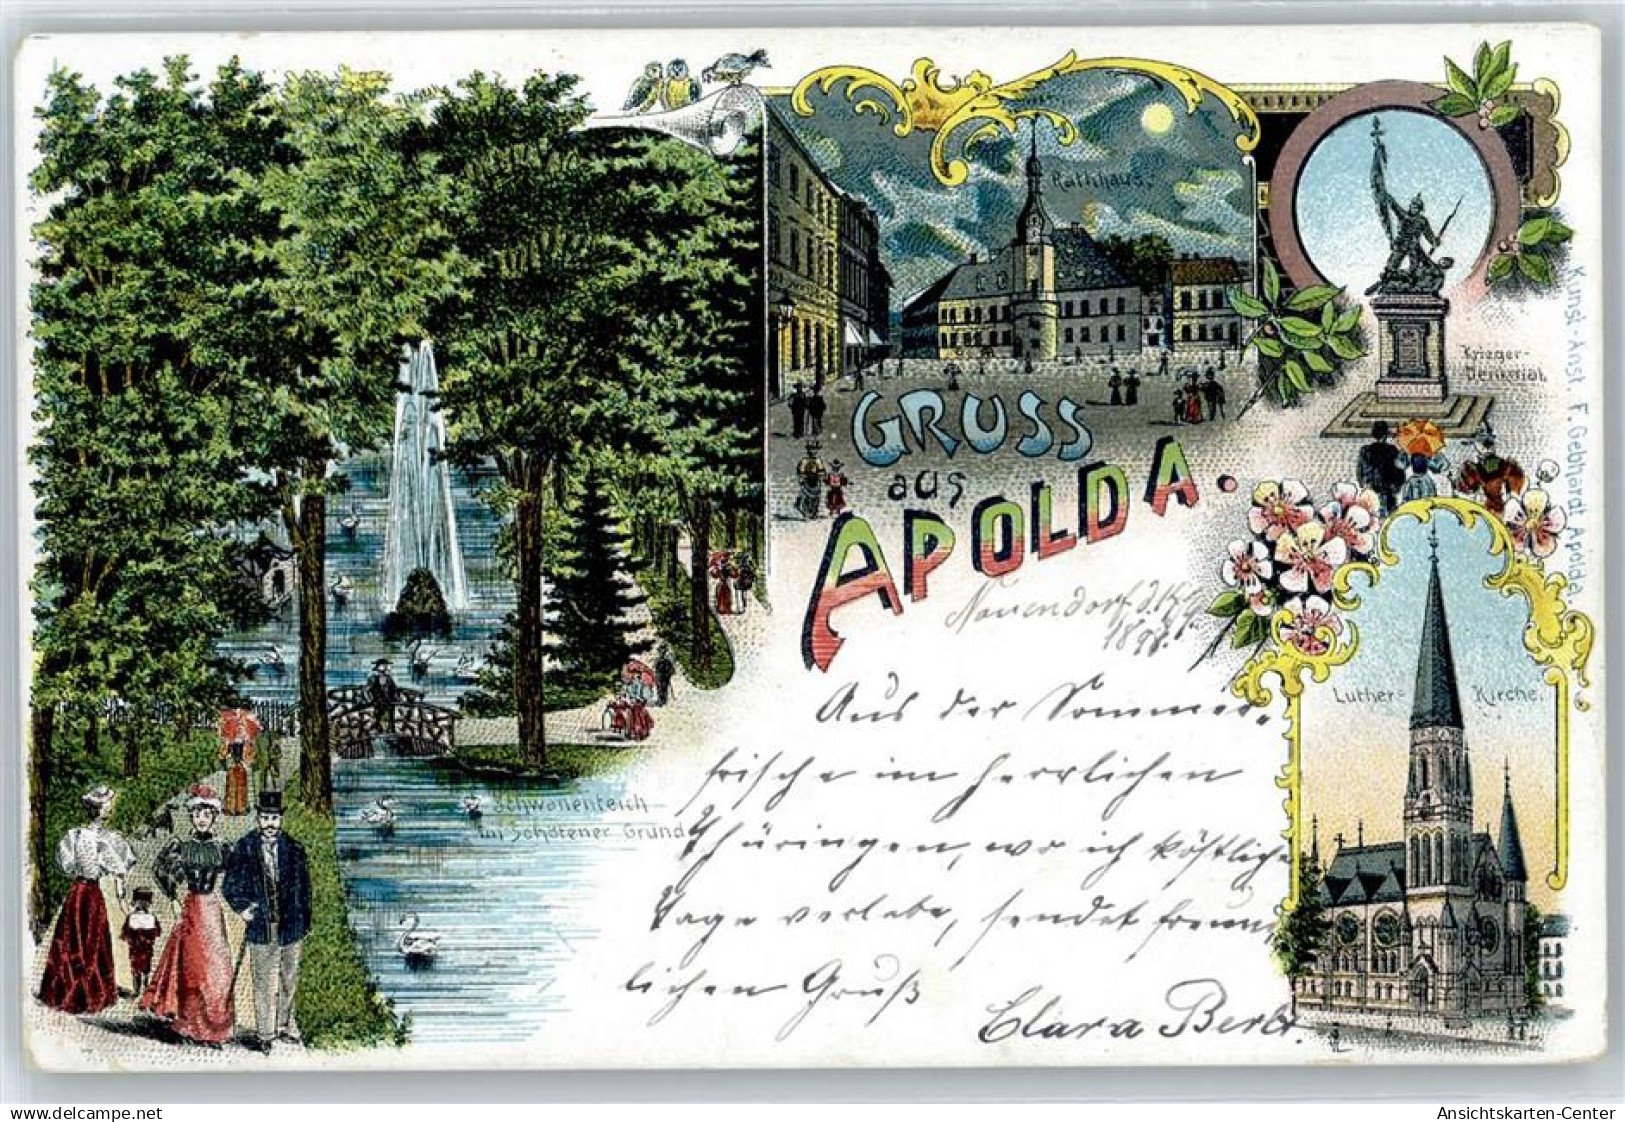 Rathhaus.
Krieger-
Denkmal.
GRUSS
aus
APOLDA.
Kunst-Anst. F. Gebhardt Apolda.
Luther- Kirche.
Schwanenteich
im Schötener Grund
1898.
Aus der Sommer-
frische im herrlichen
Thüringen, wo ich köstliche
Tage verlebe, sendet freund-
lichen Gruß
Clara
delcampe.net
Ansichtskarten-Center